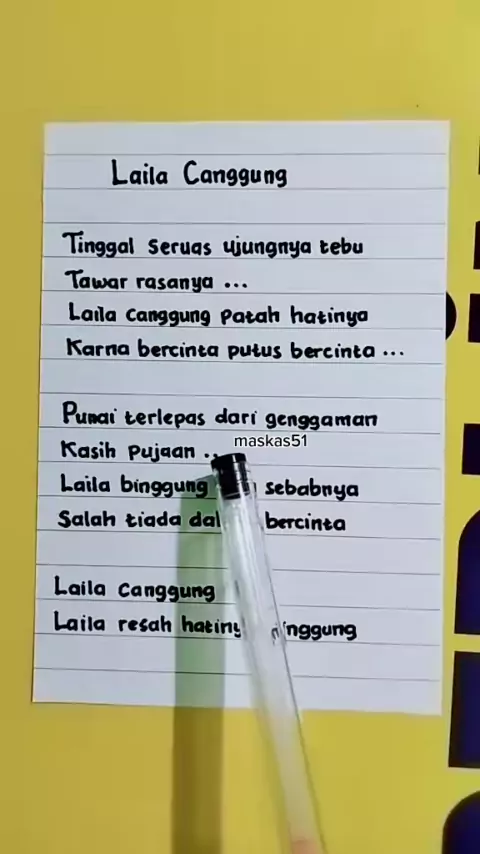 Laila Canggung
Tinggal seruas ujungnya tebu
Tawar rasanya ...
Laila canggung patah hatinya
Karna bercinta putus bercinta ...
Punai terlepas dari genggaman
maskas51
Kasih pujaan ..
Laila binggung sebabnya
Salah tiada bercinta
Laila Canggung
Laila resah